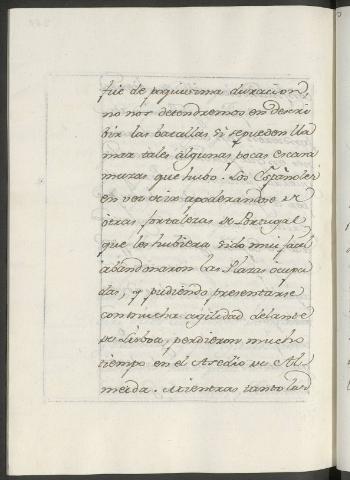 fue de poquissima duracion,
no nos detendremos en descri
bir las batallas si se pueden lla
mar tales algunas pocas escara
muzas que hubo. Los Españoles
en vez de ir apoderandose de
otras fortalezas de Portugal
que les hubiera sido mui facil
abandonaron las Plazas ocupa
das, y pudiendo presentarse
con mucha agilidad delante
de Lisboa, perdieron mucho
tiempo en el Asedio de Al-
meida. Mientras tanto las